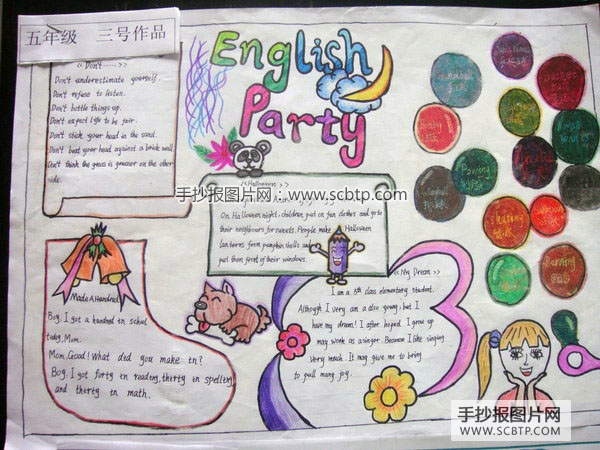 五年级 三号作品
English
Party
<< Don't...... >>
Don't underestimate yourself.
Don't refuse to listen.
Don't bottle things up.
Don't expect life to be fair.
Don't stick your head in the sand.
Don't beat your head against a brick wall
Don't think the grass is greener on the other
side.
手抄报图片网：www.scbtp.com
<<Halloween>>
On Halloween night, children put on fun clothes and go to
their neighbours for sweets. People make Halloween
lanterns from pumpkin shells and
put them front of their windows.
Made A Hundred
Boy, I got a hundred in school
today, Mum.
Mom, Good! What did you make in?
Boy, I got forty in reading, thirty in spelling
and thirty in math.
<< My Dream >>
I am a 5th class elementary student.
Although I very am a also young, but I
have my dream! I after hoped I grow up
may work as a singer. Because I like singing
very much. It may give to bring
to pull many joy.
Skating
Running
手抄报图片网
WWW.SCBTP.COM